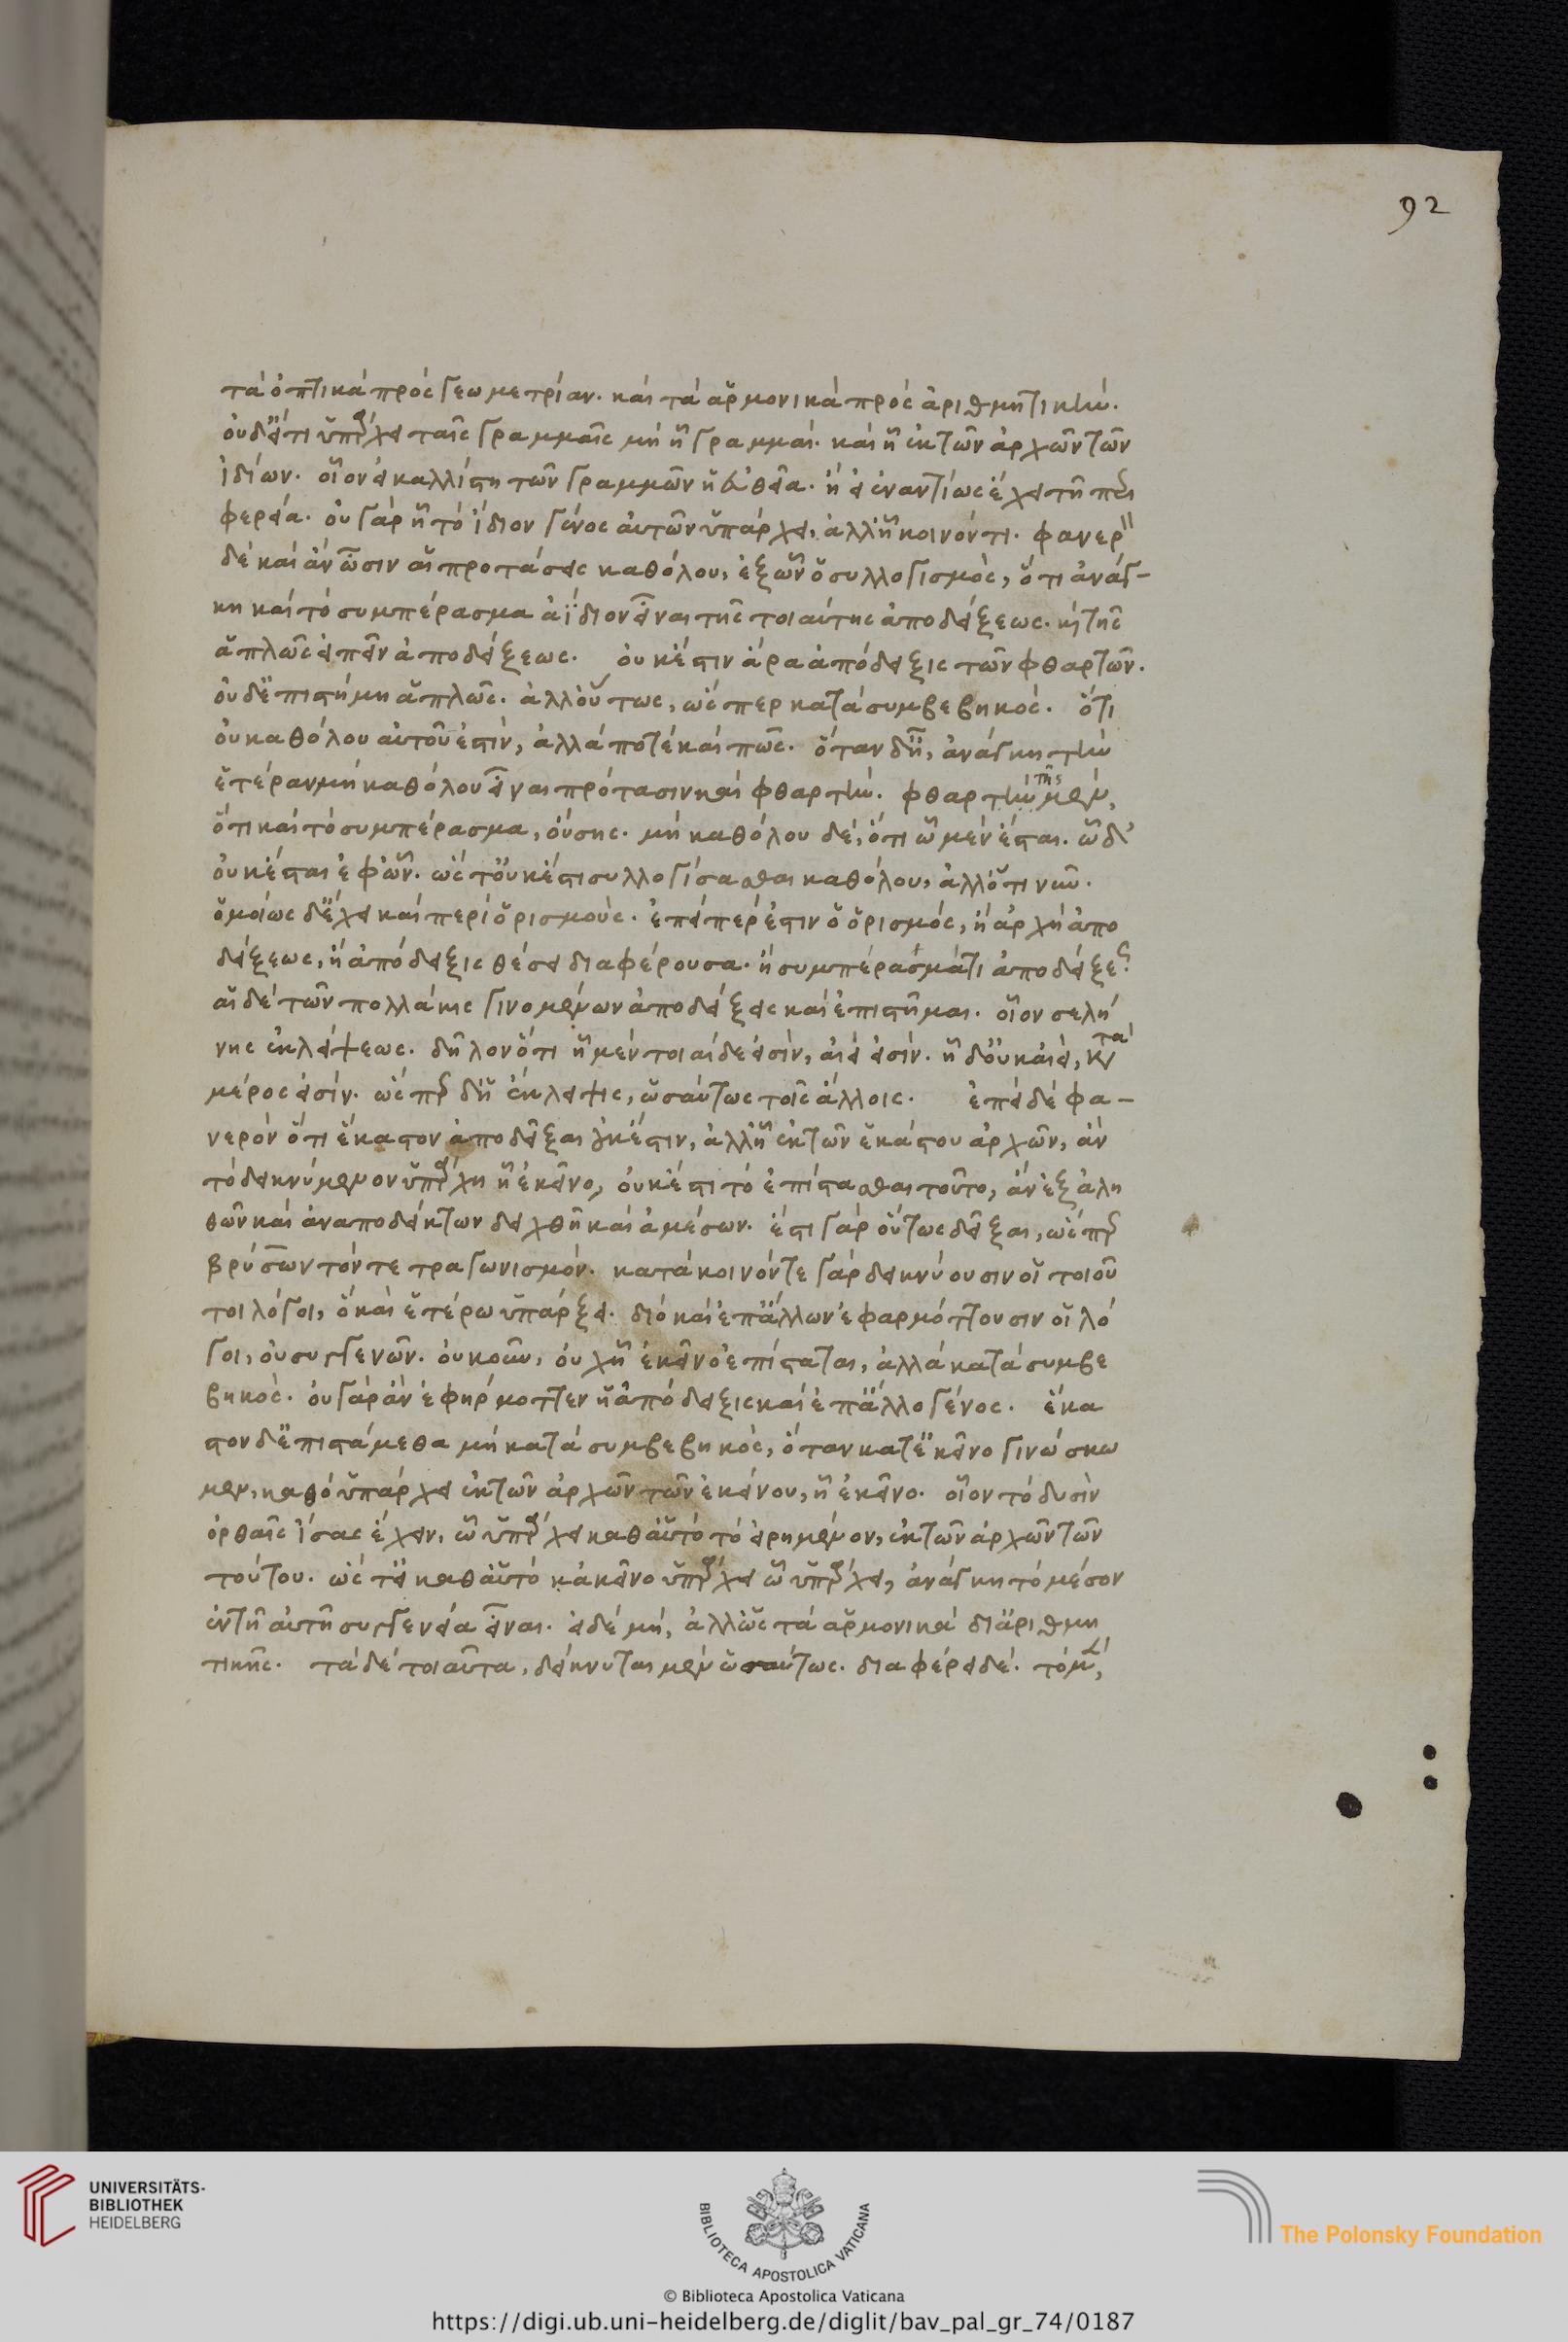 92
τὰ ὀπτικὰ πρὸς γεωμετρίαν. καὶ τὰ ἁρμονικὰ πρὸς ἀριθμητικήν.
οὐδ' εἴ τι ὑπάρχει ταῖς γραμμαῖς μὴ ᾗ γραμμαί. καὶ ᾗ ἐκ τῶν ἀρχῶν τῶν
ἰδίων. οἷον εἰ καλλίστη τῶν γραμμῶν ἡ εὐθεῖα. ἢ εἰ ἐναντίως ἔχει τῇ περι
φερεία. οὐ γὰρ ᾗ τὸ ἴδιον γένος αὐτῶν ὑπάρχει, ἀλλ' ᾗ κοινόν τι. φανερὸν
δὲ καὶ ἂν ὦσιν αἱ προτάσεις καθόλου, ἐξ ὧν ὁ συλλογισμὸς, ὅτι ἀνάγ-
κη καὶ τὸ συμπέρασμα ἀΐδιον εἶναι τῆς τοιαύτης ἀποδείξεως. καὶ τῆς
ἁπλῶς εἰπεῖν ἀποδείξεως. οὐκ ἔστιν ἄρα ἀπόδειξις τῶν φθαρτῶν.
οὐδ' ἐπιστήμη ἁπλῶς. ἀλλ' οὕτως, ὥσπερ κατὰ συμβεβηκός. ὅτι
οὐ καθόλου αὐτοῦ ἐστίν, ἀλλά ποτὲ καὶ πῶς. ὅταν δ' ᾖ, ἀνάγκη τὴν
ἑτέραν μὴ καθόλου εἶναι πρότασιν καὶ φθαρτήν. φθαρτὴν μὲν,
ὅτι καὶ τὸ συμπέρασμα, οὔσης. μὴ καθόλου δὲ, ὅτι ᾧ μὲν ἔσται. ᾧ δ'
οὐκ ἔσται ἐφ' ὧν. ὥστ' οὐκ ἔστι συλλογίσασθαι καθόλου, ἀλλ' ὅτι νῦν.
ὁμοίως δ' ἔχει καὶ περὶ ὁρισμούς. ἐπείπερ ἐστὶν ὁ ὁρισμός, ἢ ἀρχὴ ἀπο
δείξεως, ἢ ἀπόδειξις θέσει διαφέρουσα. ἢ συμπέρασμά τι ἀποδείξεως.
αἱ δὲ τῶν πολλάκις γινομένων ἀποδείξεις καὶ ἐπιστῆμαι. οἷον σελή
νης ἐκλείψεως. δῆλον ὅτι ᾗ μὲν τοιαίδε εἰσὶν, ἀεὶ εἰσίν. ᾗ δ' οὐκ ἀεὶ, κατὰ
μέρος εἰσίν. ὥσπερ δ' ἡ ἔκλειψις, ὡσαύτως τοῖς ἄλλοις. ἐπεὶ δὲ φα-
νερὸν ὅτι ἕκαστον ἀποδεῖξαι οὐκ ἔστιν, ἀλλ' ἢ ἐκ τῶν ἑκάστου ἀρχῶν, ἂν
τὸ δεικνύμενον ὑπάρχη ᾗ ἐκεῖνο, οὐκ ἔστι τὸ ἐπίστασθαι τοῦτο, ἂν ἐξ ἀλη
θῶν καὶ ἀναποδείκτων δειχθῆ καὶ ἀμέσων. ἔστι γὰρ οὕτως δεῖξαι, ὥσπερ
βρύσων τόν τετραγωνισμόν. κατὰ κοινόν τε γὰρ δεικνύουσιν οἱ τοιοῦ
τοι λόγοι, ὃ καὶ ἑτέρω ὑπάρξει. διὸ καὶ ἐπ' ἄλλων ἐφαρμόττουσιν οἱ λό
γοι, οὐ συγγενῶν. οὐκοῦν, οὐχ ᾗ ἐκεῖνο ἐπίσταται, ἀλλὰ κατὰ συμβε
βηκός. οὐ γὰρ ἂν ἐφήρμοττεν ἡ ἀπόδειξις καὶ ἐπ' ἄλλο γένος. ἕκα
στον δ' ἐπιστάμεθα μὴ κατὰ συμβεβηκὸς, ὅταν κατ' ἐκεῖνο γινώσκω
μεν, καθὸ ὑπάρχει ἐκ τῶν ἀρχῶν τῶν ἐκείνου, ᾗ ἐκεῖνο. οἷον τὸ δυσὶν
ὀρθαῖς ἴσας ἔχειν, ᾧ ὑπάρχει καθ' αὑτὸ τὸ εἰρημένον, ἐκ τῶν ἀρχῶν τῶν
τούτου. ὥστ' εἰ καθ' αὑτὸ κἀκεῖνο ὑπάρχει ᾧ ὑπάρχει, ἀνάγκη τὸ μέσον
ἐν τῆ αὐτῆ συγγενεία εἶναι. εἰ δὲ μή, ἀλλ' ὡς τὰ ἁρμονικὰ δι' ἀριθμη
τικῆς. τὰ δὲ τοιαῦτα, δείκνυται μὲν ὡσαύτως. διαφέρει δέ. τὸ μὲν
UNIVERSITÄTS-
BIBLIOTHEK
HEIDELBERG
BIBLIOTECA APOSTOLICA VATICANA
The Polonsky Foundation
© Biblioteca Apostolica Vaticana
https://digi.ub.uni-heidelberg.de/diglit/bav_pal_gr_74/0187